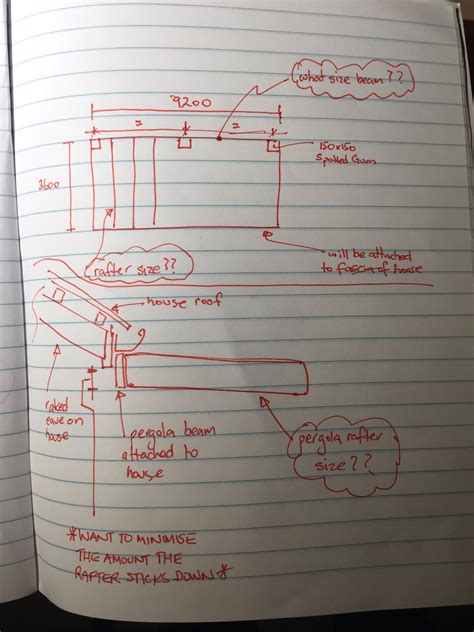 what size beam??
9200
= =
150x150
Spotted Gum
3600
rafter size??
will be attached
to fascia of house
house roof
raked
eave on
house
pergola beam
attached to
house
pergola rafter
size??
*WANT TO MINIMISE
THE AMOUNT THE
RAFTER STICKS DOWN*